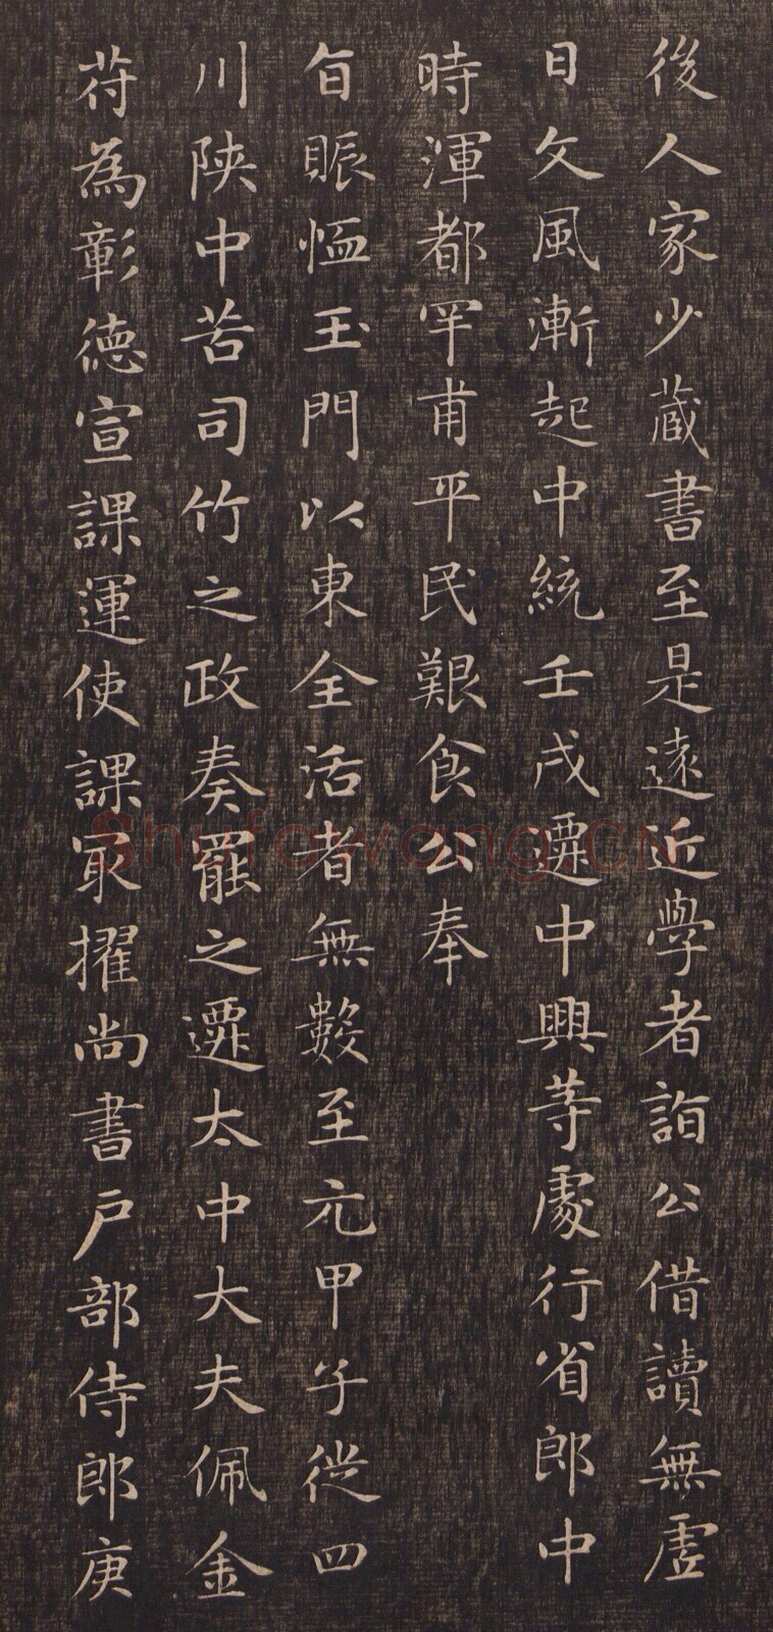 後人家少蔵書至是遠近學者詣公借讀無虗
日文風漸起中統壬戌遷中興等處行省郎中
時渾都罕甫平民艱食公奉
旨賑恤玉門以東全活者無數至元甲子従四
川陕中苦司竹之政奏罷之遷太中大夫佩金
苻為彰徳宣課運使課冣擢尚書戸部侍郎庚
Shufawang.CN